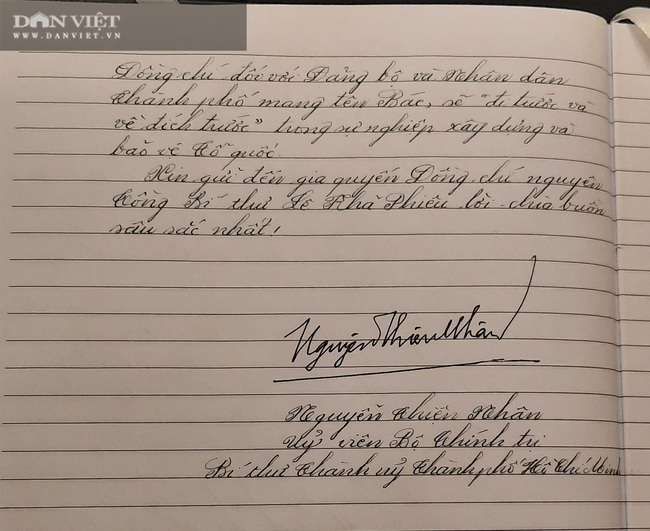 DÂN VIỆT
WWW.DANVIET.VN
Đồng chí đối với Đảng bộ và Nhân dân
thành phố mang tên Bác, sẽ "đi trước và
về đích trước" trong sự nghiệp xây dựng và
bảo vệ Tổ quốc.
Xin gửi đến gia quyến Đồng chí nguyên
Tổng Bí thư Lê Khả Phiêu lời chia buồn
sâu sắc nhất!
Nguyễn Thiện Nhân
Nguyễn Thiện Nhân
Uỷ viên Bộ Chính trị
Bí thư Thành uỷ Thành phố Hồ Chí Minh